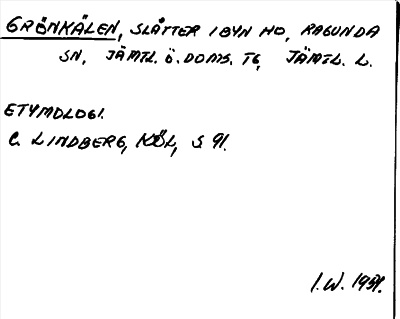 GRÖNKÄLEN, SLÅTTER I BYN HO, RAGUNDA
SN, JÄMTL. Ö. DOMS. TG, JÄMTL. L.
ETYMOLOGI.
C. LINDBERG, KÖL, S 91.
I.W. 1951.